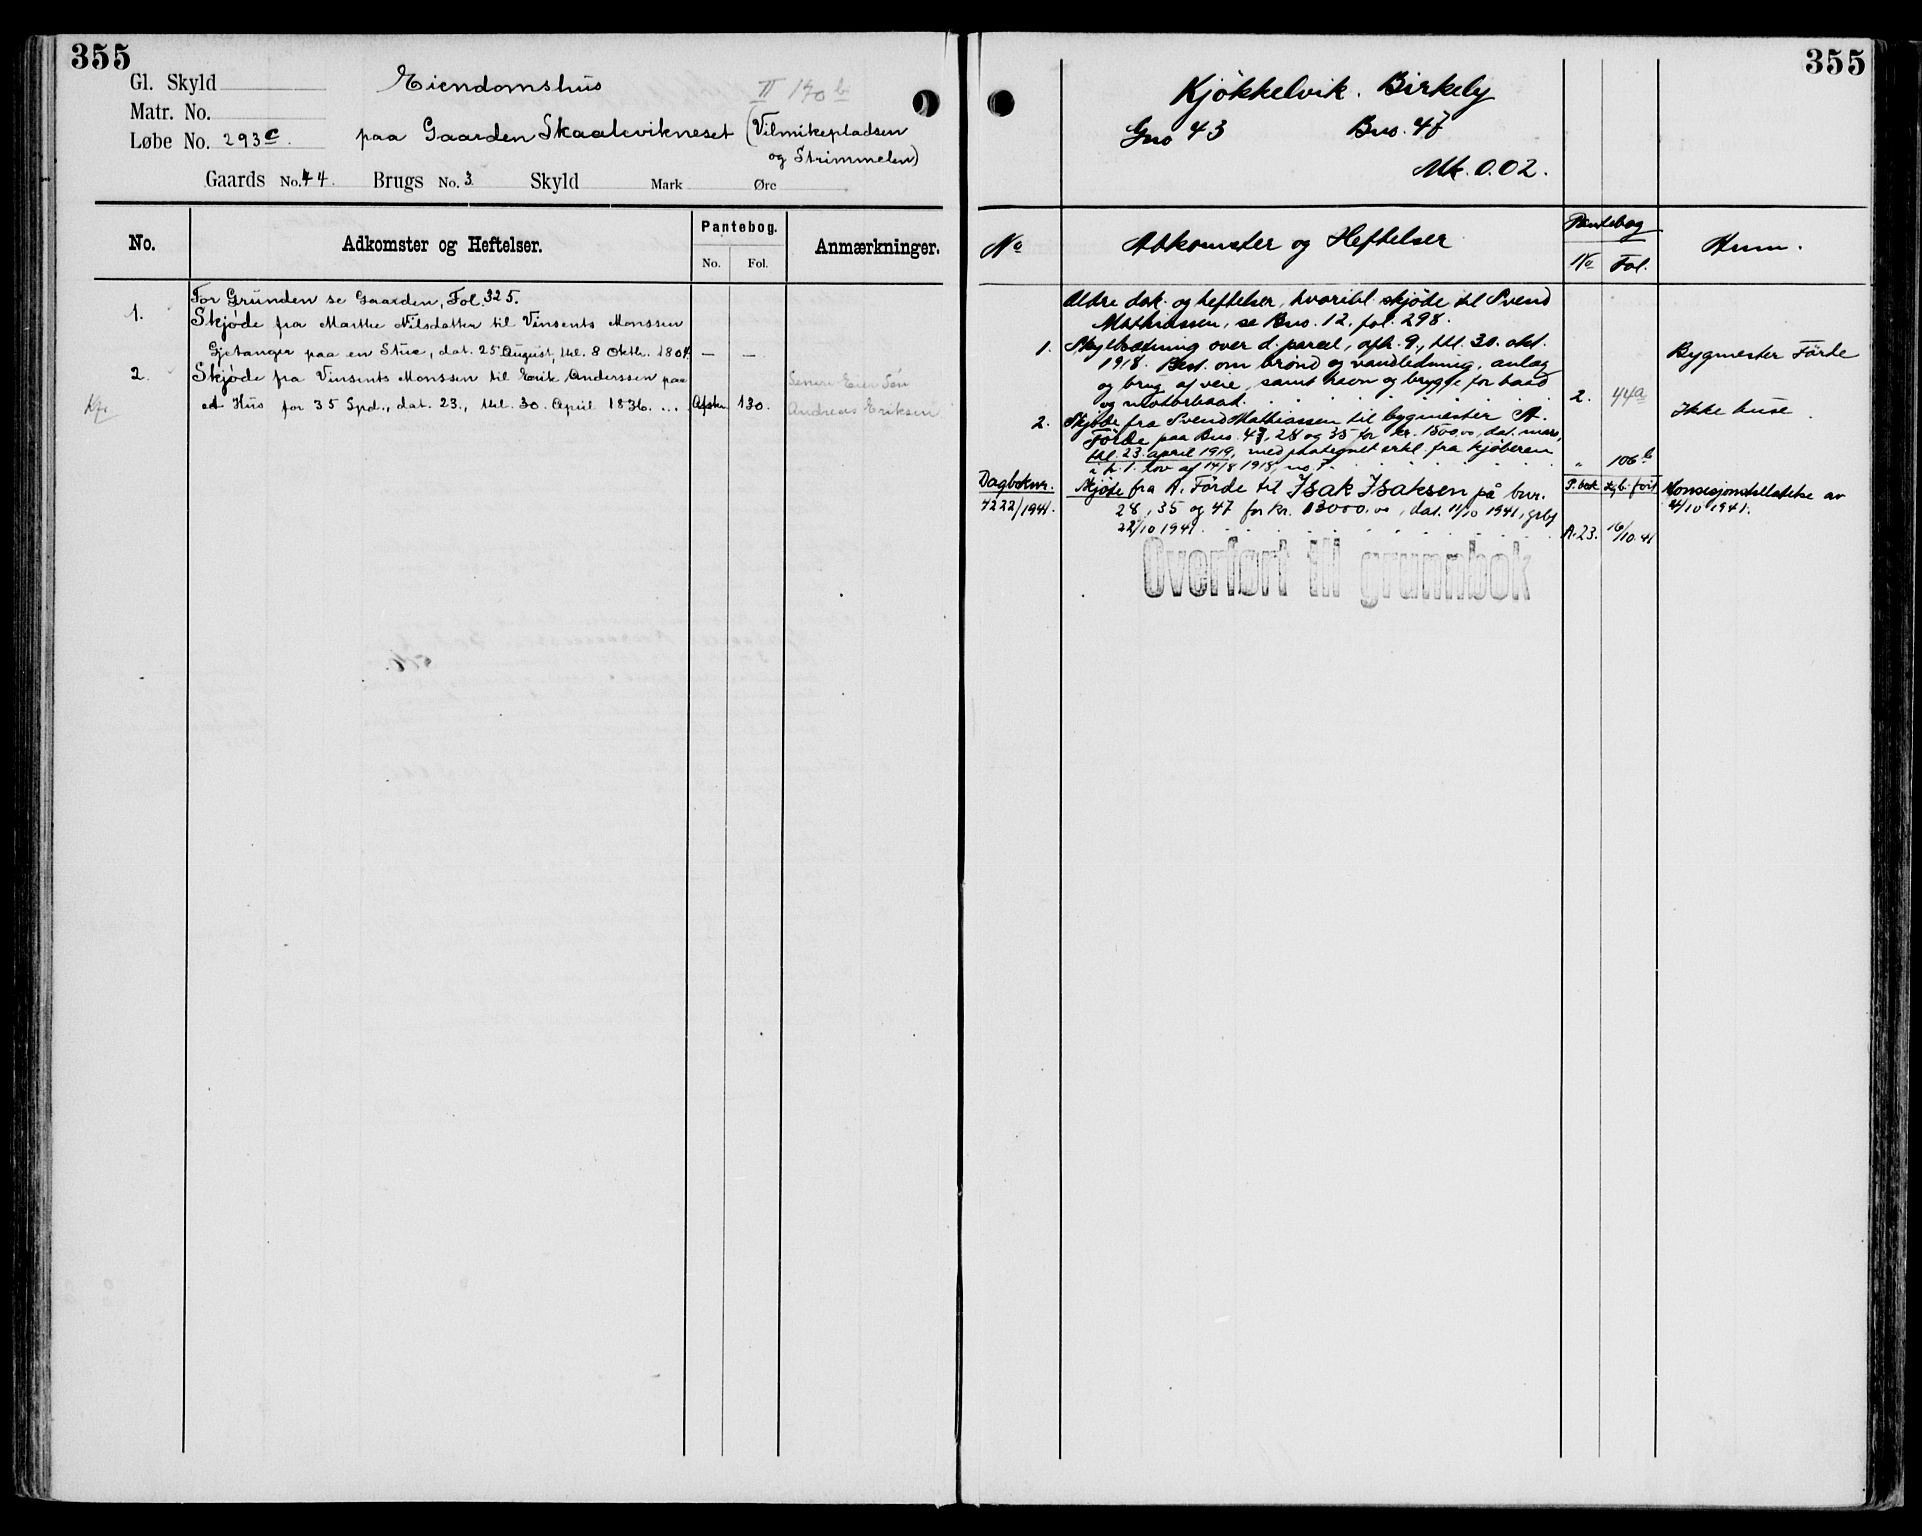 355
Gl. Skyld
Matr. No.
Løbe No. 293c.
Eiendomshus
II 170 b
paa Gaarden Skaalevikneset (Vilmikepladsen
og Strimmelen)
Gaards No. 44. Brugs No. 3 Skyld Mark Øre
No. Adkomster og Heftelser. Pantebog. Anmærkninger.
No. Fol.
For Grunden se Gaarden, Fol. 325.
1. Skjøde fra Marthe Nilsdatter til Vinsents Monssen
Gjetanger paa en Stue, dat. 25 August, thl. 8 Oktb. 1804. — —
2. Skjøde fra Vinsents Monssen til Erik Anderssen paa
et Hus for 35 Spd., dat. 23., thl. 30. April 1836. ... Afskr. 130.
Senere Eier Søn
Andreas Eriksen
355
Kjøkkelvik. Birkely
Gno 43 Bno. 47
Mk. 0.02.
No Adkomster og Heftelser Pantebog Anm.
No Fol.
Ældre dok. og heftelser, hvoribl. skjøde til Svend
Mathiassen, se Bno. 12, fol. 298.
1. Skyldsætning over d. parcel, afh. 9., thl. 30. okt.
1918. Best. om brønd og vandledning, anlæg
og brug af veie, samt havn og brygge for baad
og motorbaad. 2. 44a
Bygmester Förde
2. Skjøde fra Svend Mathiassen til bygmester A.
Förde paa Bno. 47, 28 og 35 for kr. 1500.00, dat. mars,
thl. 23. april 1919, med paategnet erkl. fra kjøberen
i h. t. lov af 14/8 1918, no. 1. " 106b
Ikke huse.
Dagboknr. 7222/1941. Skjøte fra A. Förde til Isak Isaksen på bnr.
28, 35 og 47 for kr. 13000.00, dat. 11/10 1941, gebj
22/10 1941. P. bok A. 23. 16/10.41
Konsesjonstillatelse av
21/10 1941.
Overført til grunnbok